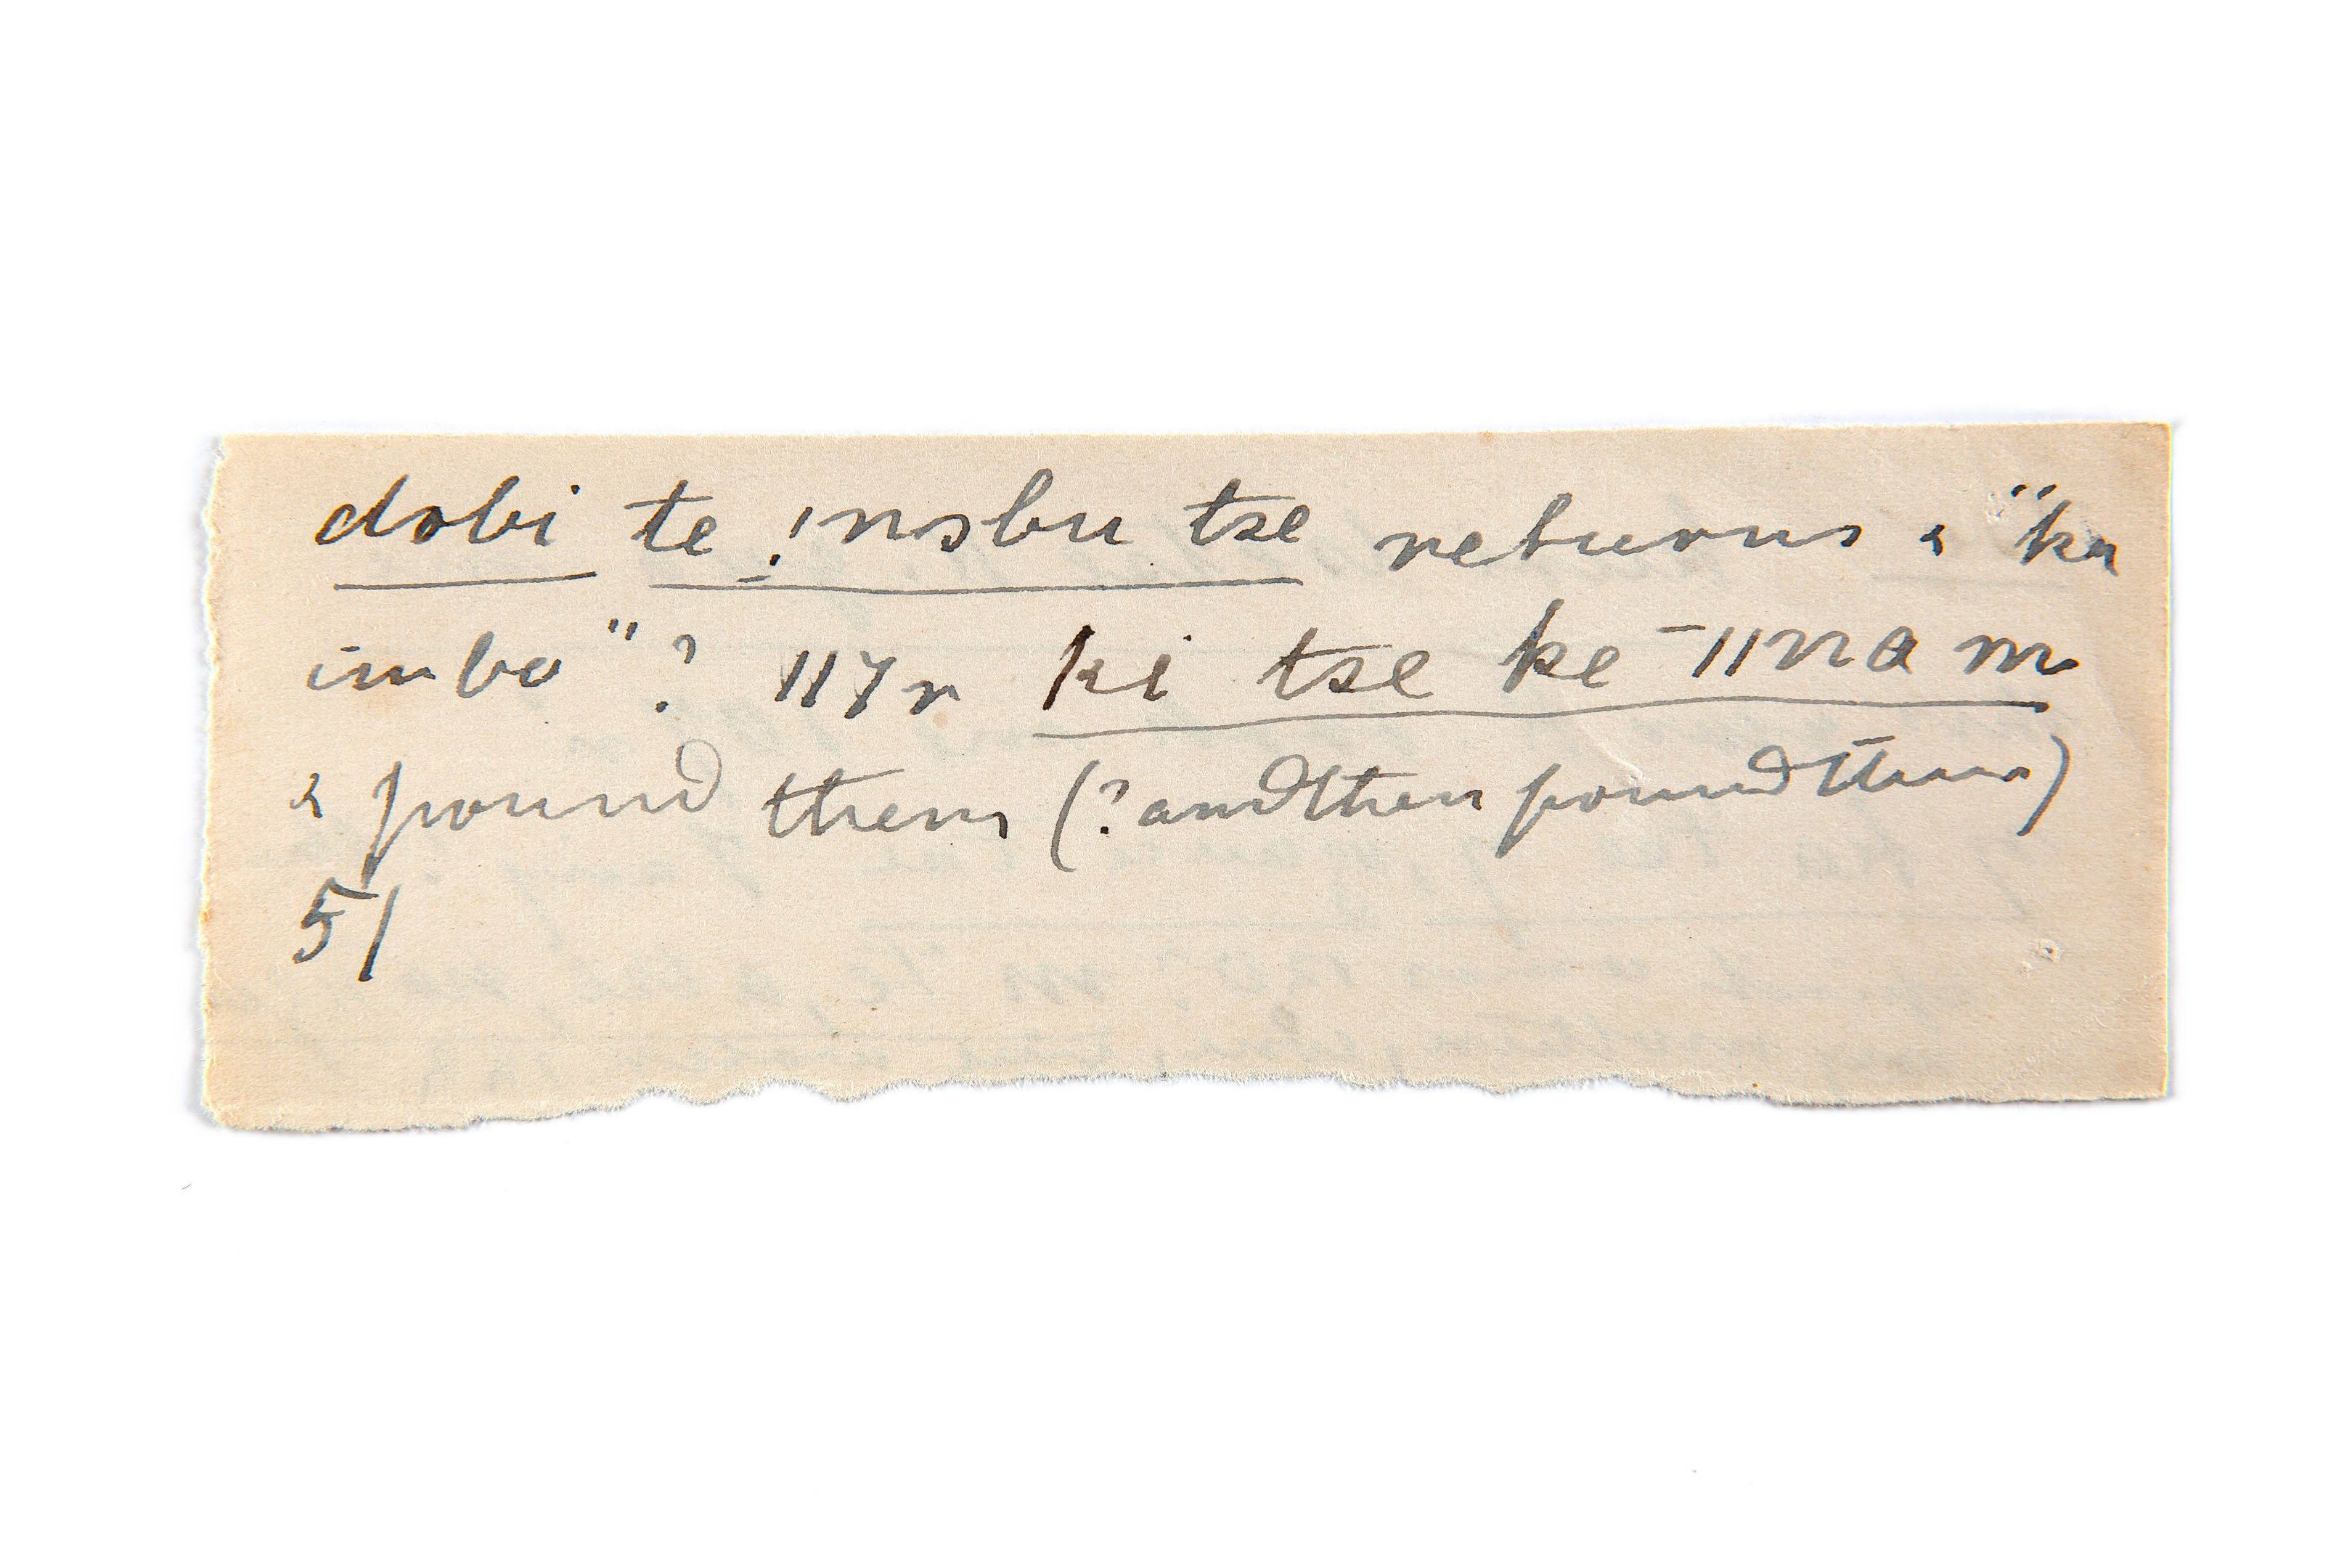 dobi te !nsbu tse returns & "ka
imbo" ? 117r ki tse ke –11na m
& pound them (? and then pound them)
51